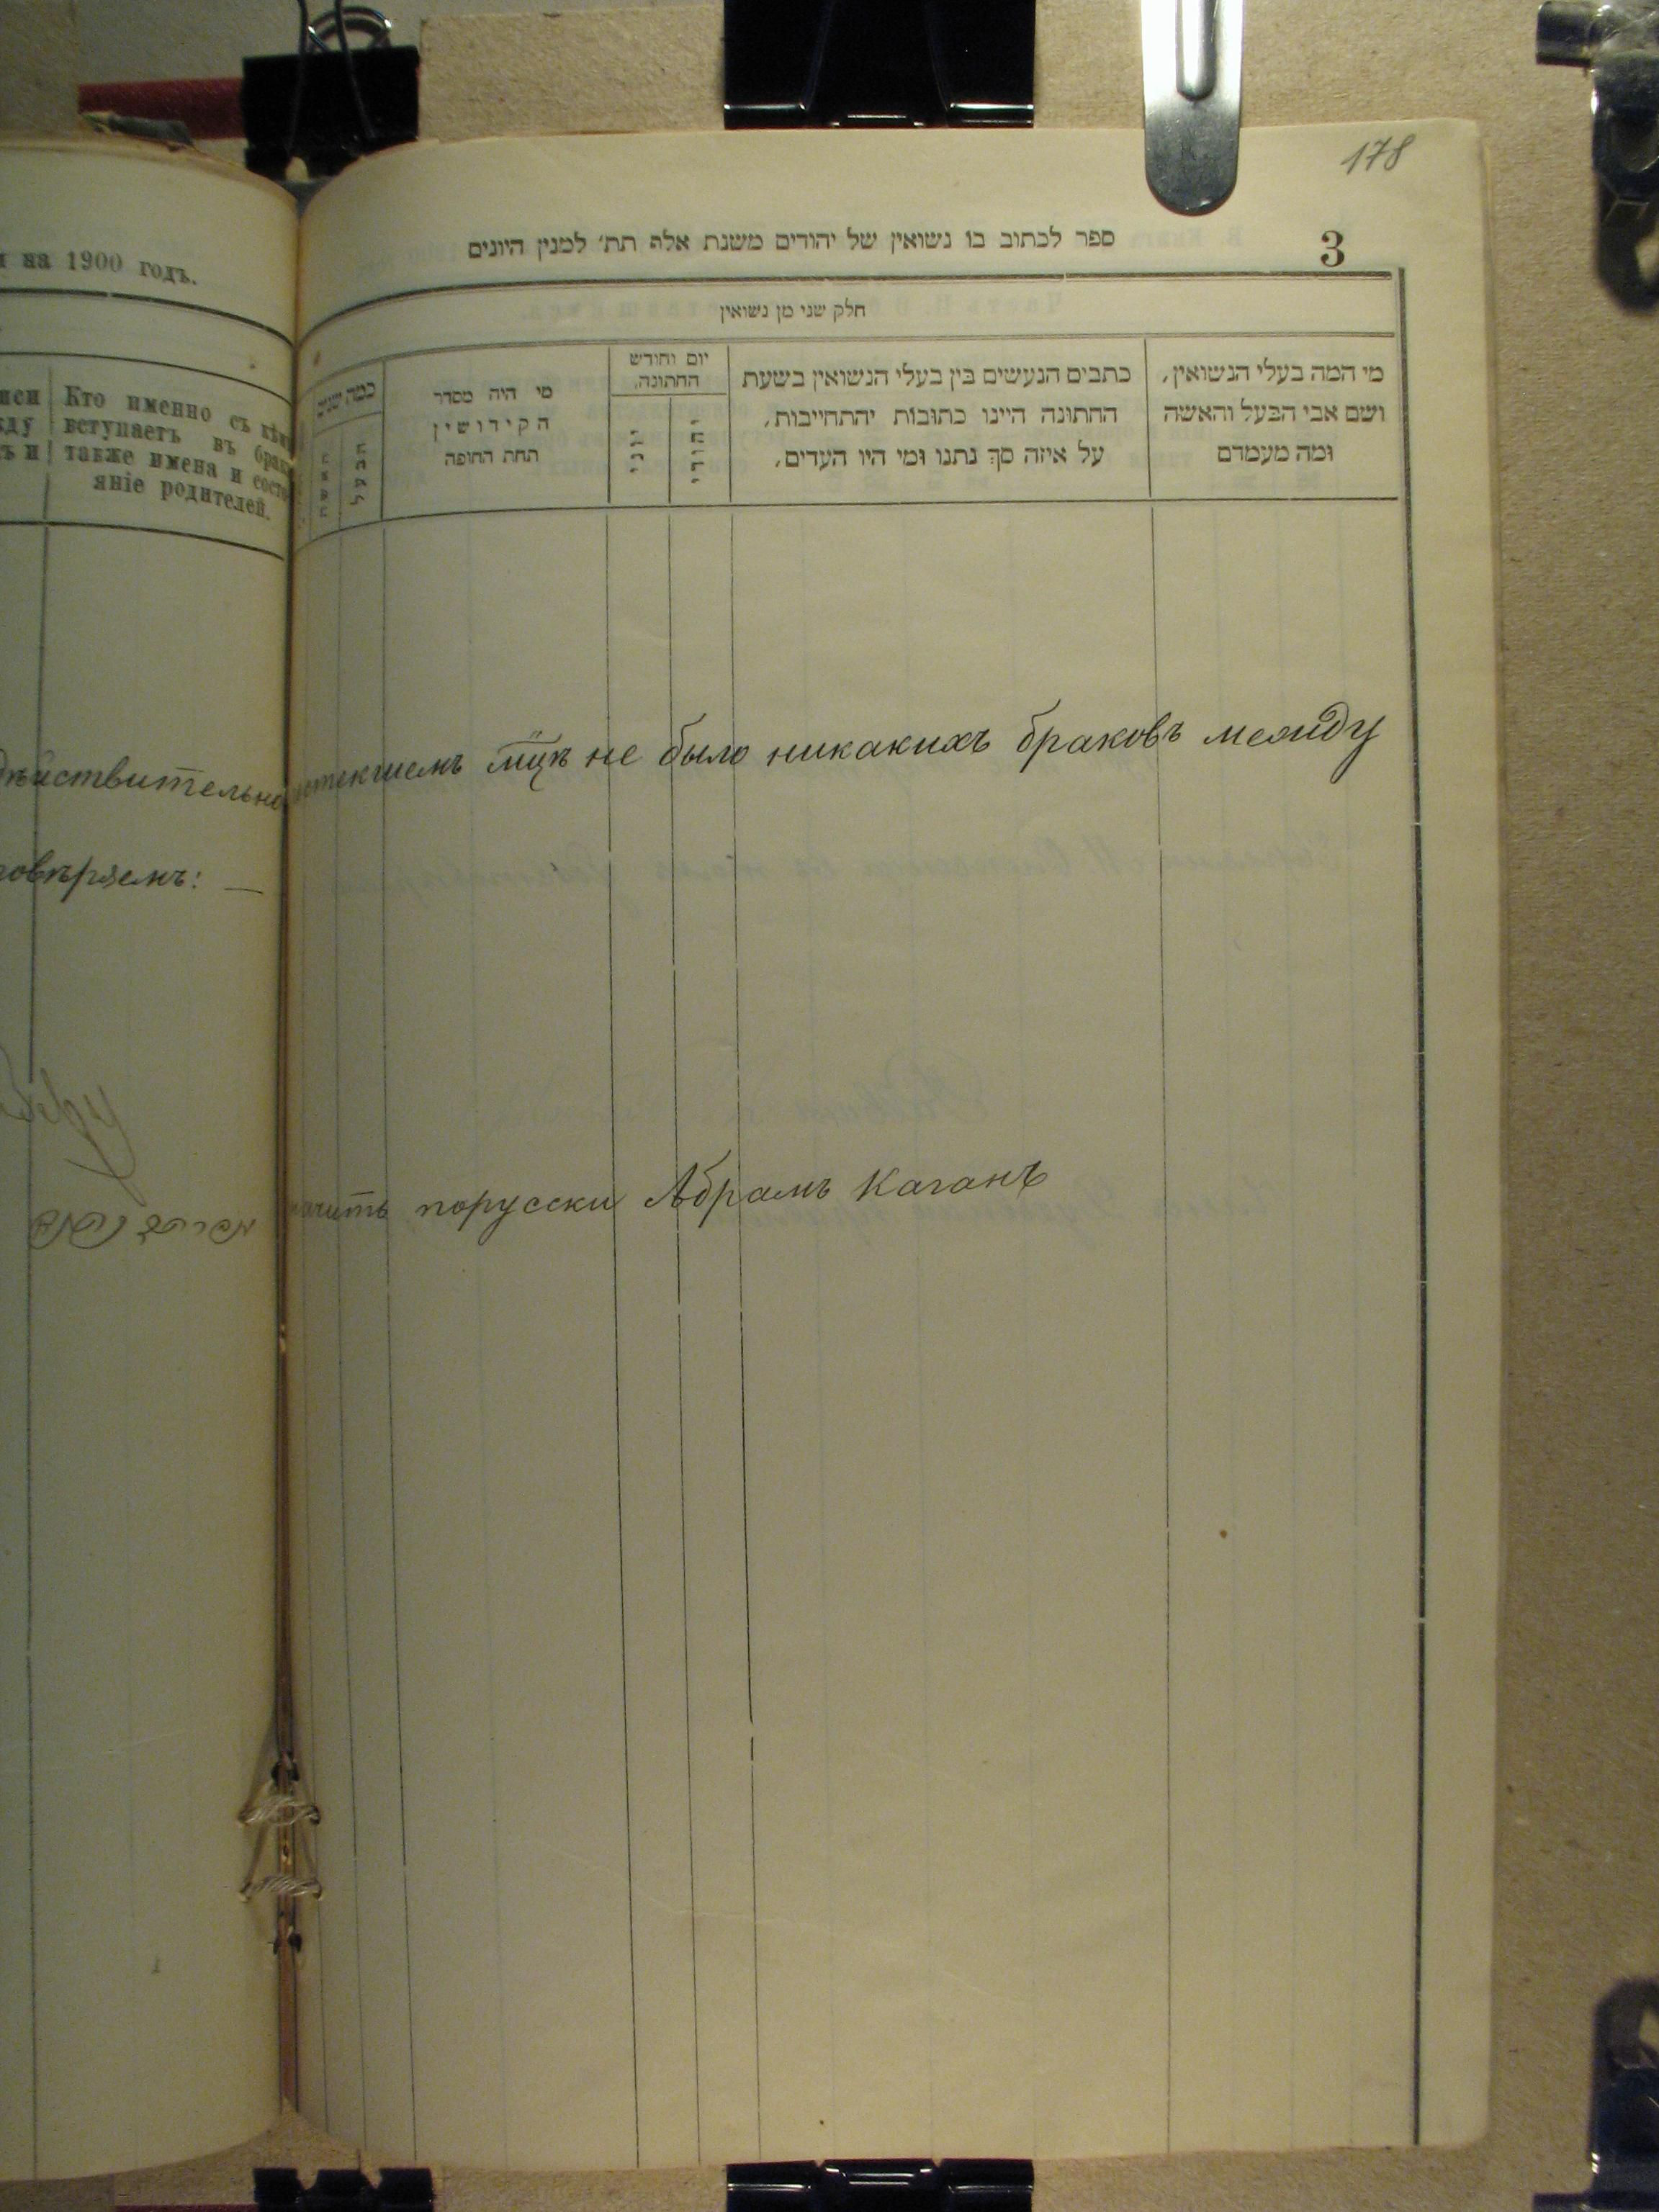 178
3
ספר לכתוב בו נשואין של יהודים משנת אלף תת׳ למנין היונים
חלק שני מן נשואין
מי המה בעלי הנשואין,
ושם אבי הבעל והאשה
ומה מעמדם
כתבים הנעשים בין בעלי הנשואין בשעת
החתונה היינו כתובות יהתחייבות,
על איזה סך נתנו ומי היו העדים,
יום וחודש
החתונה.
יהודי
יוני
מי היה מסדר
הקידושין
תחת החופה
כמה שנים
на 1900 годъ.
Кто именно съ кѣмъ
вступаетъ въ бракъ
также имена и состо-
яніе родителей.
дѣйствительно истекшемъ мцѣ не было никакихъ браковъ между
значитъ порусски Абрамъ Каганъ